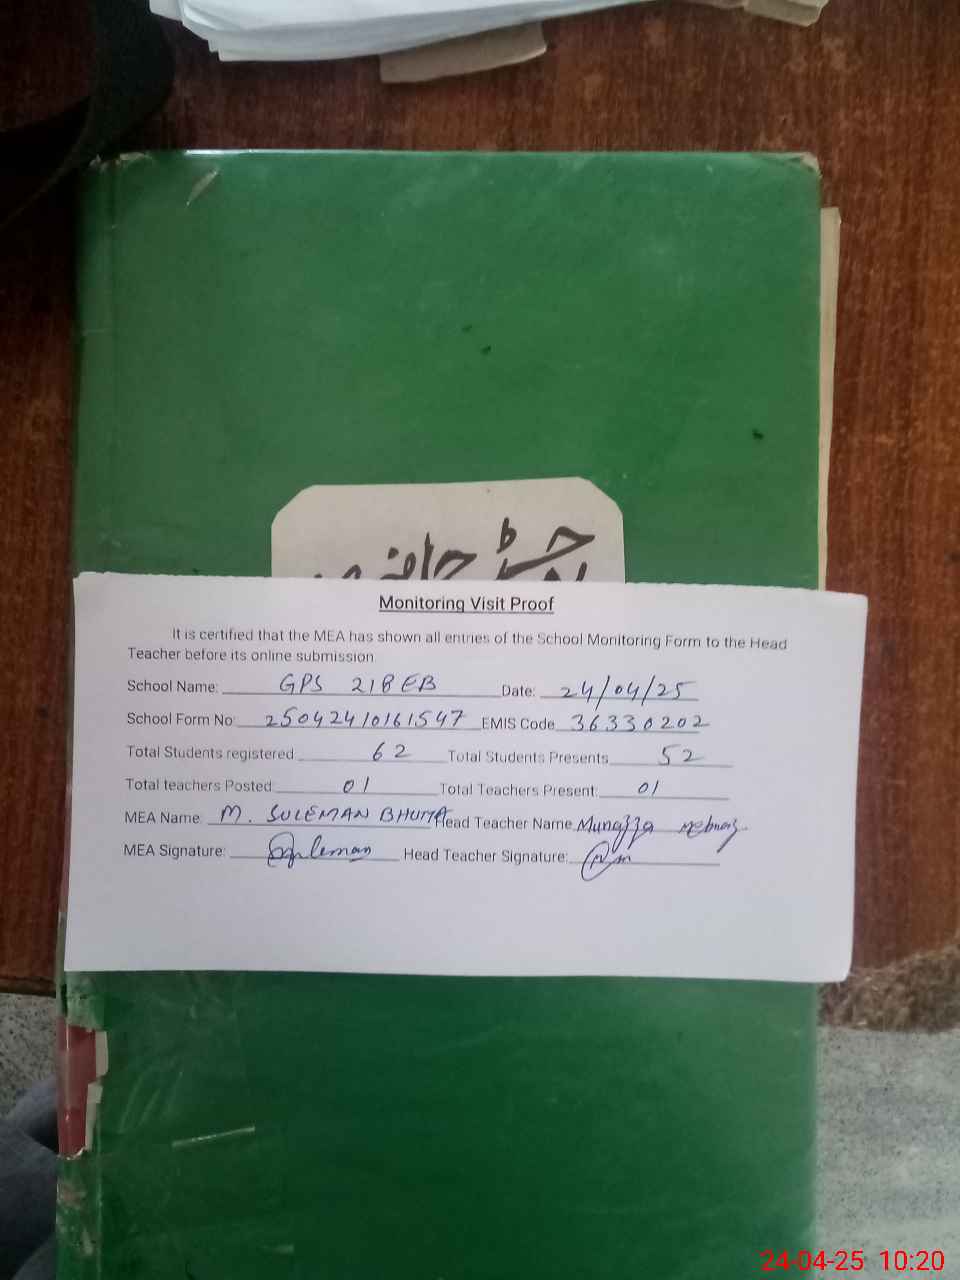 رجسٹر حاضری
Monitoring Visit Proof
It is certified that the MEA has shown all entries of the School Monitoring Form to the Head
Teacher before its online submission
School Name: GPS 218 EB Date: 24/04/25
School Form No: 25042410161547 EMIS Code 36330202
Total Students registered 62 Total Students Presents 52
Total teachers Posted: 01 Total Teachers Present: 01
MEA Name: M. SULEMAN BHUTTA Head Teacher Name Munazza
MEA Signature: Suleman Head Teacher Signature:
24-04-25 10:20